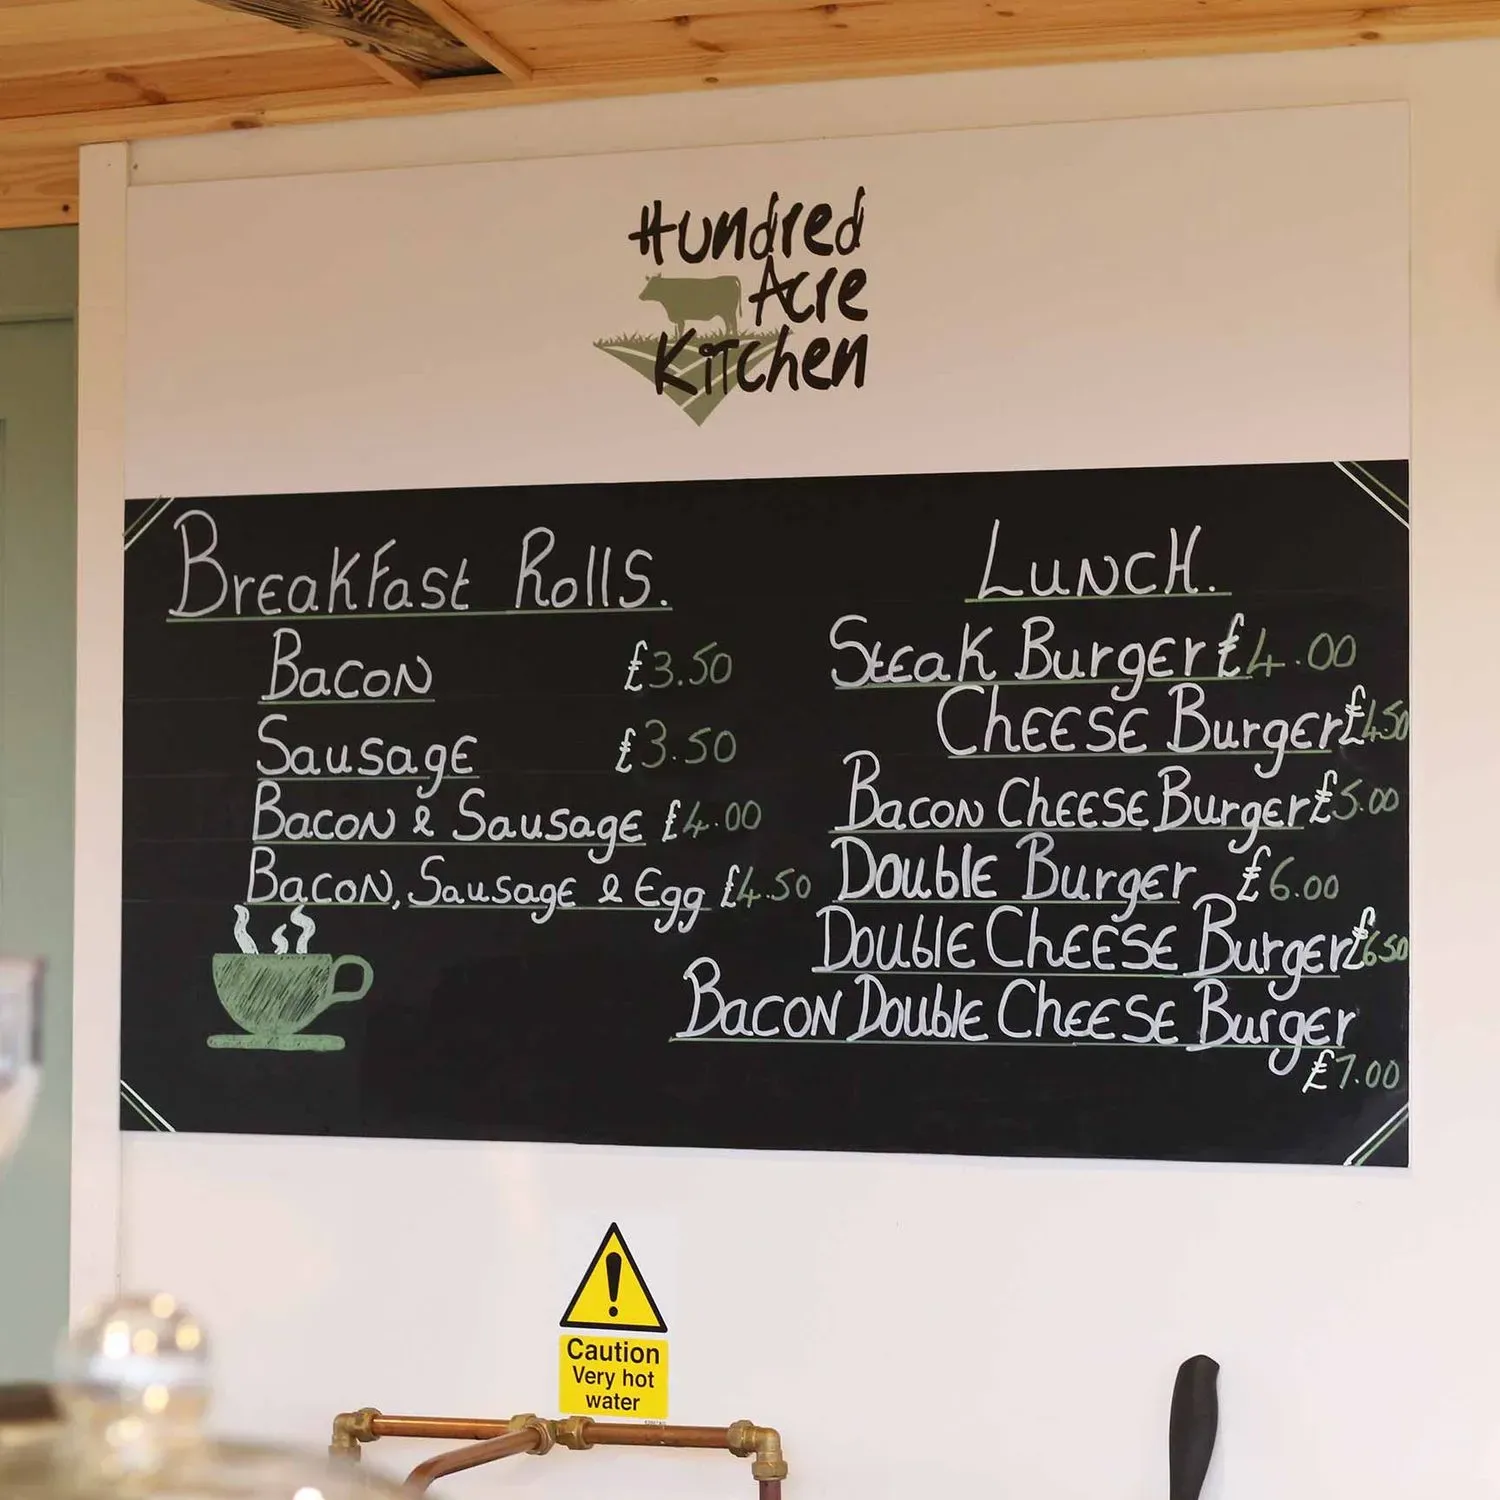 Hundred
Acre
Kitchen
Breakfast Rolls.
Bacon £3.50
Sausage £3.50
Bacon & Sausage £4.00
Bacon, Sausage & Egg £4.50
Lunch.
Steak Burger £4.00
Cheese Burger £4.50
Bacon Cheese Burger £5.00
Double Burger £6.00
Double Cheese Burger £6.50
Bacon Double Cheese Burger
£7.00
Caution
Very hot
water